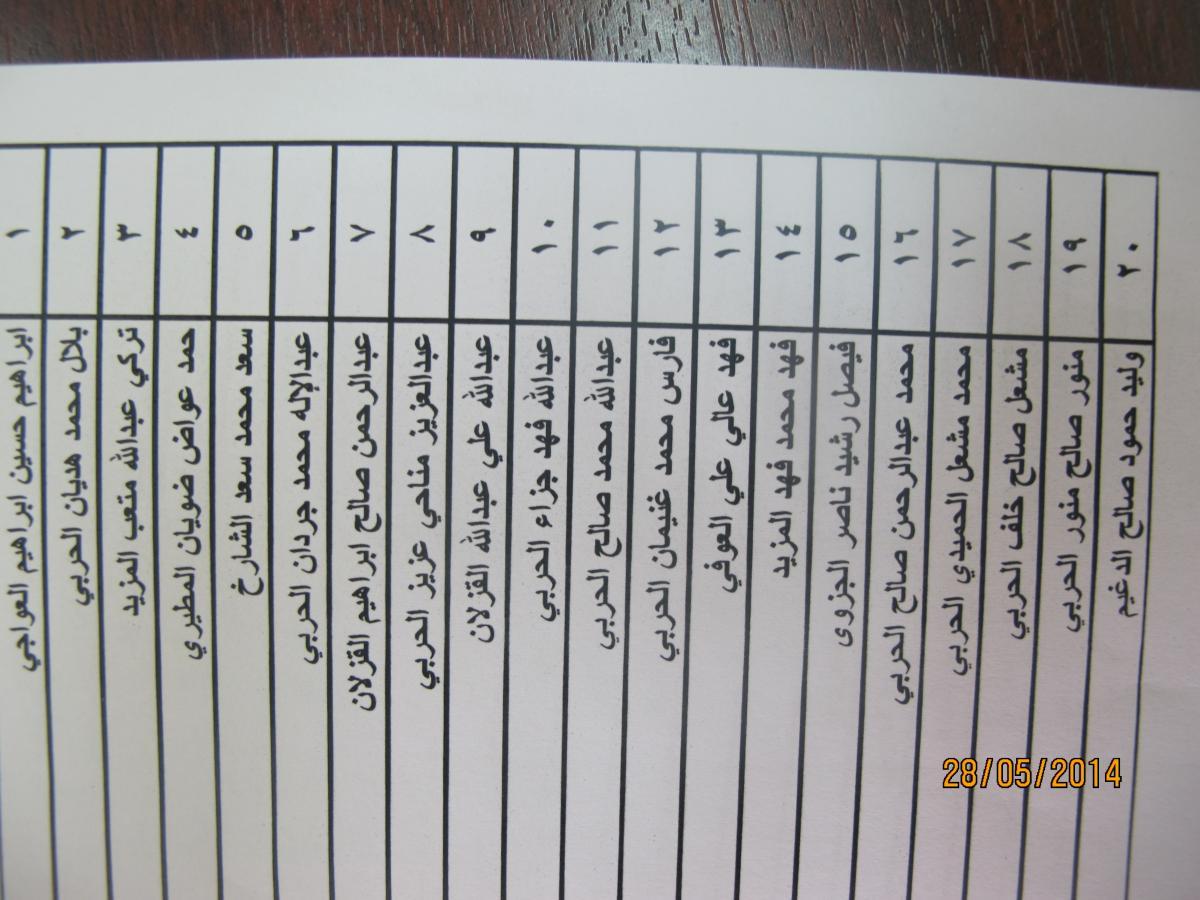 ١ ابراهيم حسين ابراهيم العواجي
٢ بلال محمد هديان الحربي
٣ تركي عبدالله متعب المزيد
٤ حمد عواض ضويان المطيري
٥ سعد محمد سعد الشارخ
٦ عبدالإله محمد جردان الحربي
٧ عبدالرحمن صالح ابراهيم القزلان
٨ عبدالعزيز مناحي عزيز الحربي
٩ عبدالله علي عبدالله القزلان
١٠ عبدالله فهد جزاء الحربي
١١ عبدالله محمد صالح الحربي
١٢ فارس محمد غنيمان الحربي
١٣ فهد عالي علي العوفي
١٤ فهد محمد فهد المزيد
١٥ فيصل رشيد ناصر الجزوى
١٦ محمد عبدالرحمن صالح الحربي
١٧ محمد مشعل الحميدي الحربي
١٨ مشعل صالح خلف الحربي
١٩ منور صالح منور الحربي
٢٠ وليد حمود صالح الدغيم
28/05/2014